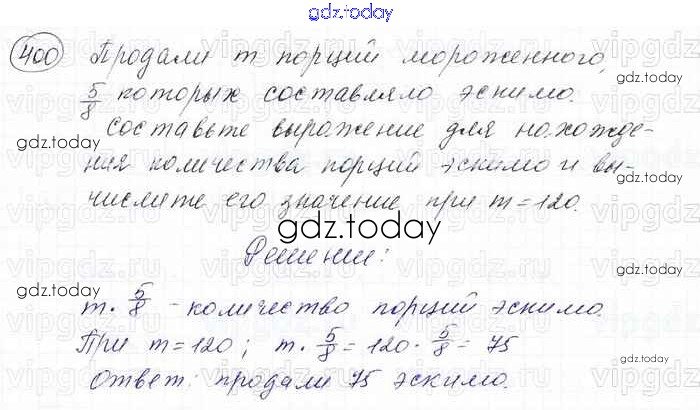 gdz.today
400 Продали m порций мороженного,
5/8 которых составляло эскимо.
gdz.today
gdz.today
Составьте выражение для нахожде-
ния количества порций эскимо и вы-
gdz.today
числите его значение при m = 120.
gdz.today
Решение:
gdz.today
m · 5/8 - количество порций эскимо.
При m = 120; m · 5/8 = 120 · 5/8 = 75
gdz.today
Ответ: продали 75 эскимо.
gdz.today